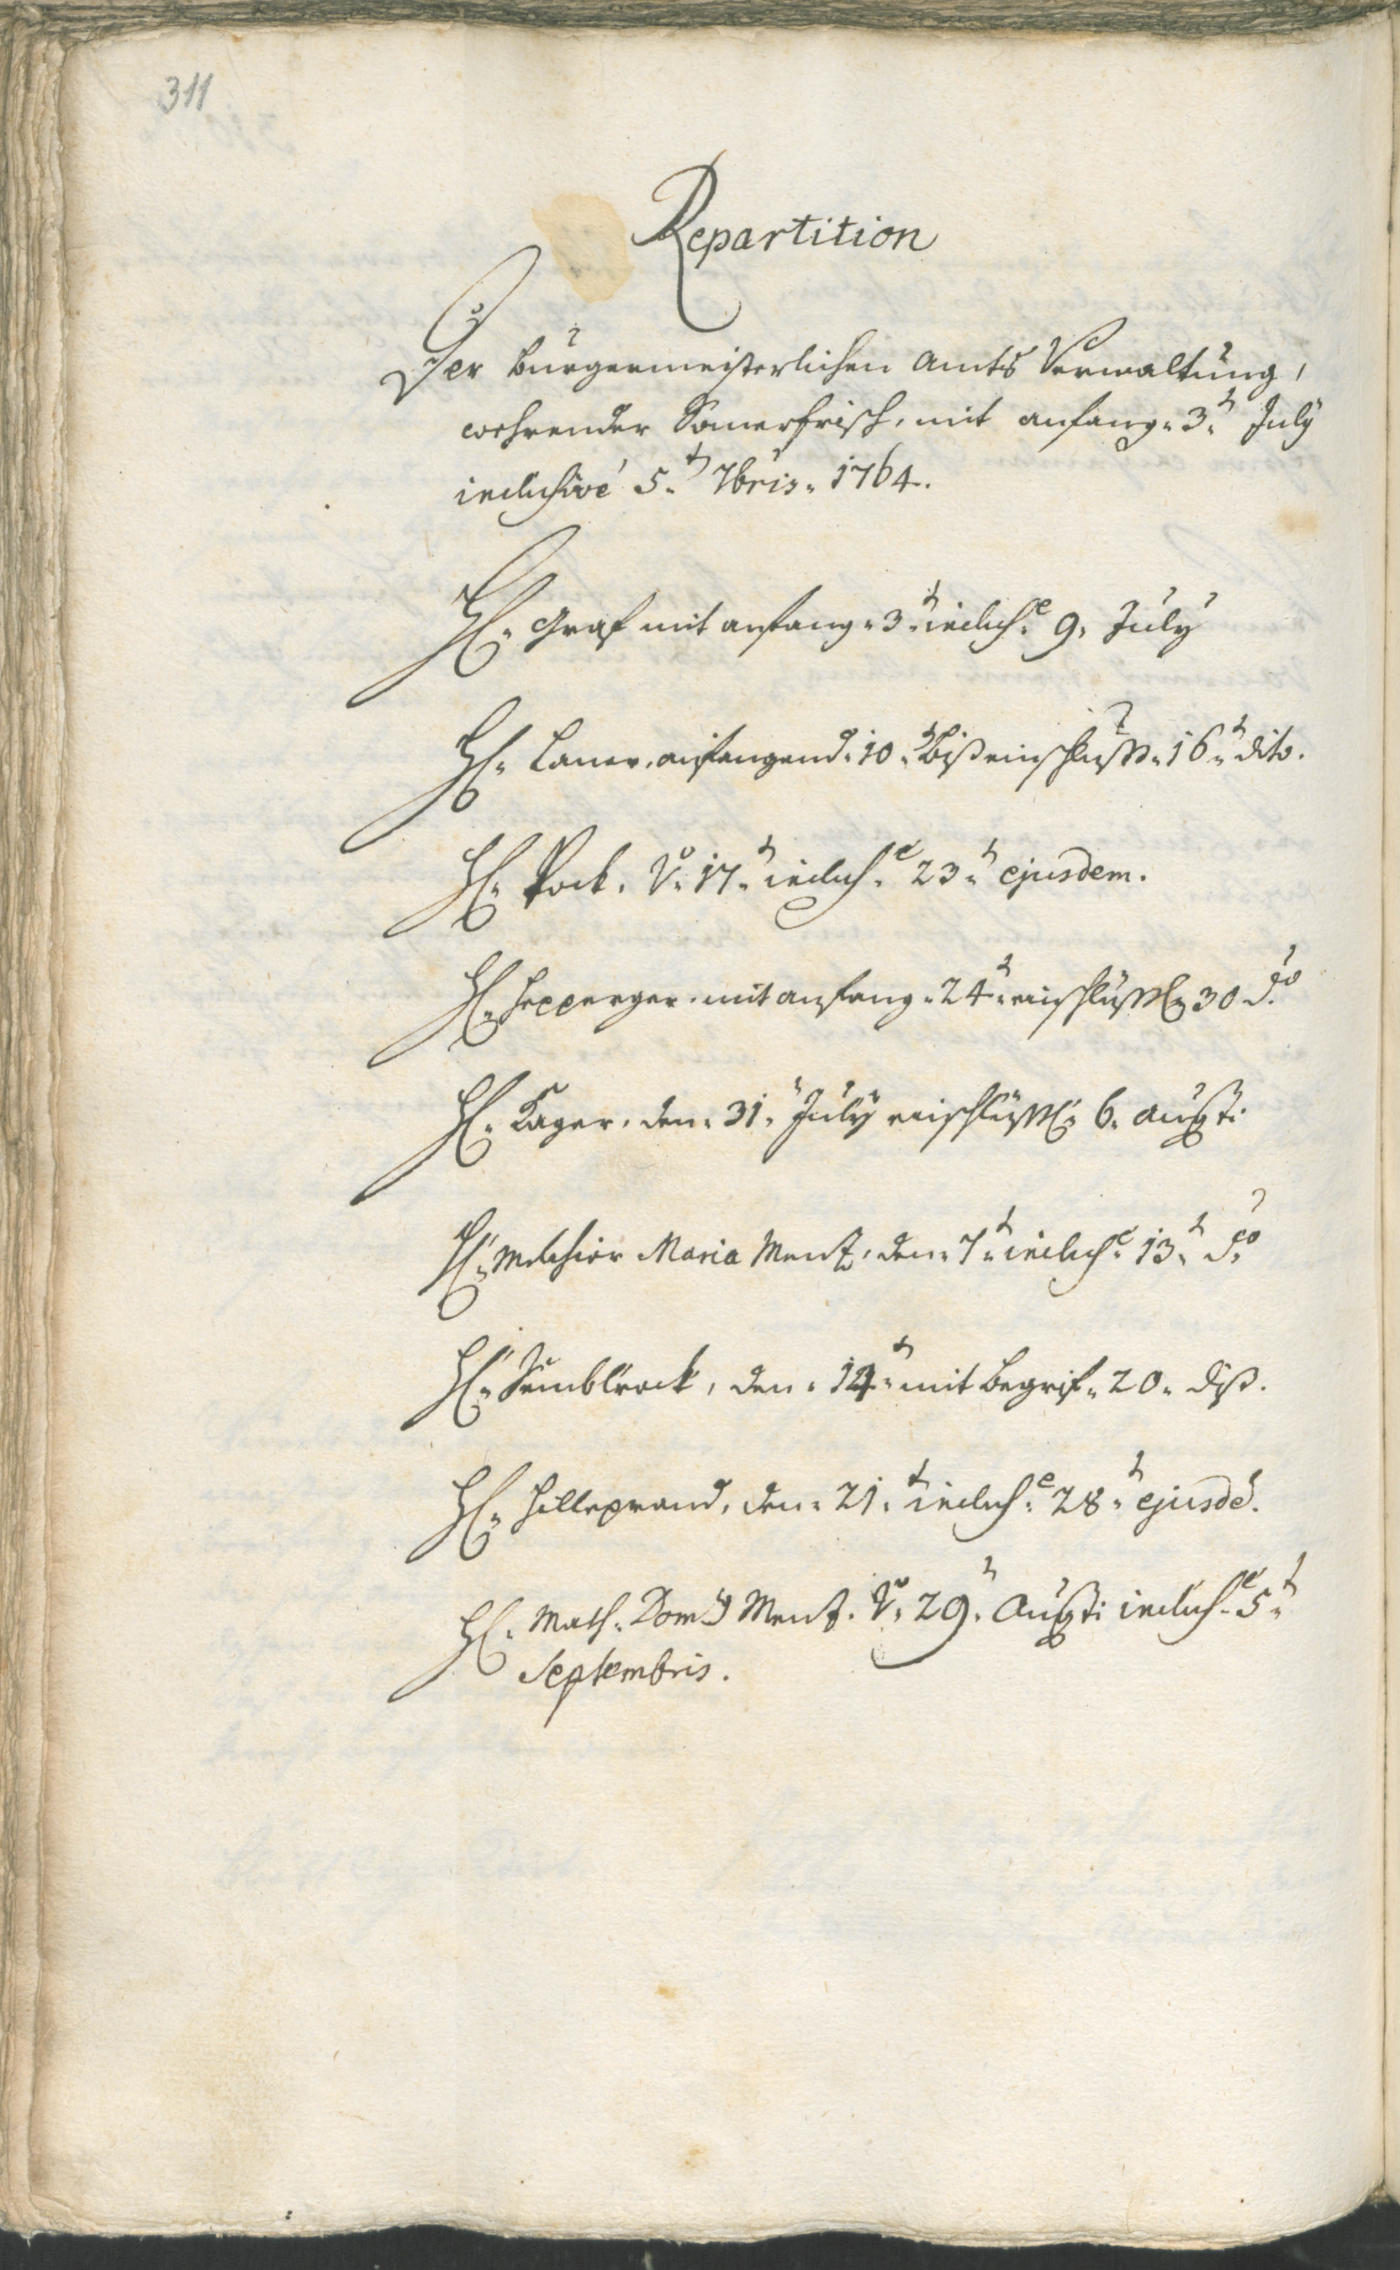 311
Repartition
Der burgermeisterlichen Amts Verwaltung,
wehrender Somerfrisch, mit anfang 3.t July
inclusivè 5.t 7bris. 1764.
H. Graf mit anfang 3.t inclus.e 9. July
H. Laner, anfangend 10.t biß einschluss. 16.t dito.
H. Pock. v.o 17.t inclus.e 23.t ejusdem.
H. Hepperger. mit anfang 24.t einschlüssl. 30 d.o
H. Kager. den 31. July einschlüssl. 6. Augsti
H. Melchior Maria Menz, den 7.t inclus.e 13.t d.o
H. Sumblrock, den 14.t mit begrif. 20. diß.
H. Hilleprand, den 21.t inclus.e 28.t ejusdē.
H. Math. Dom. Menz. v.o 29.t Augsti inclus.e 5.t
Septembris.